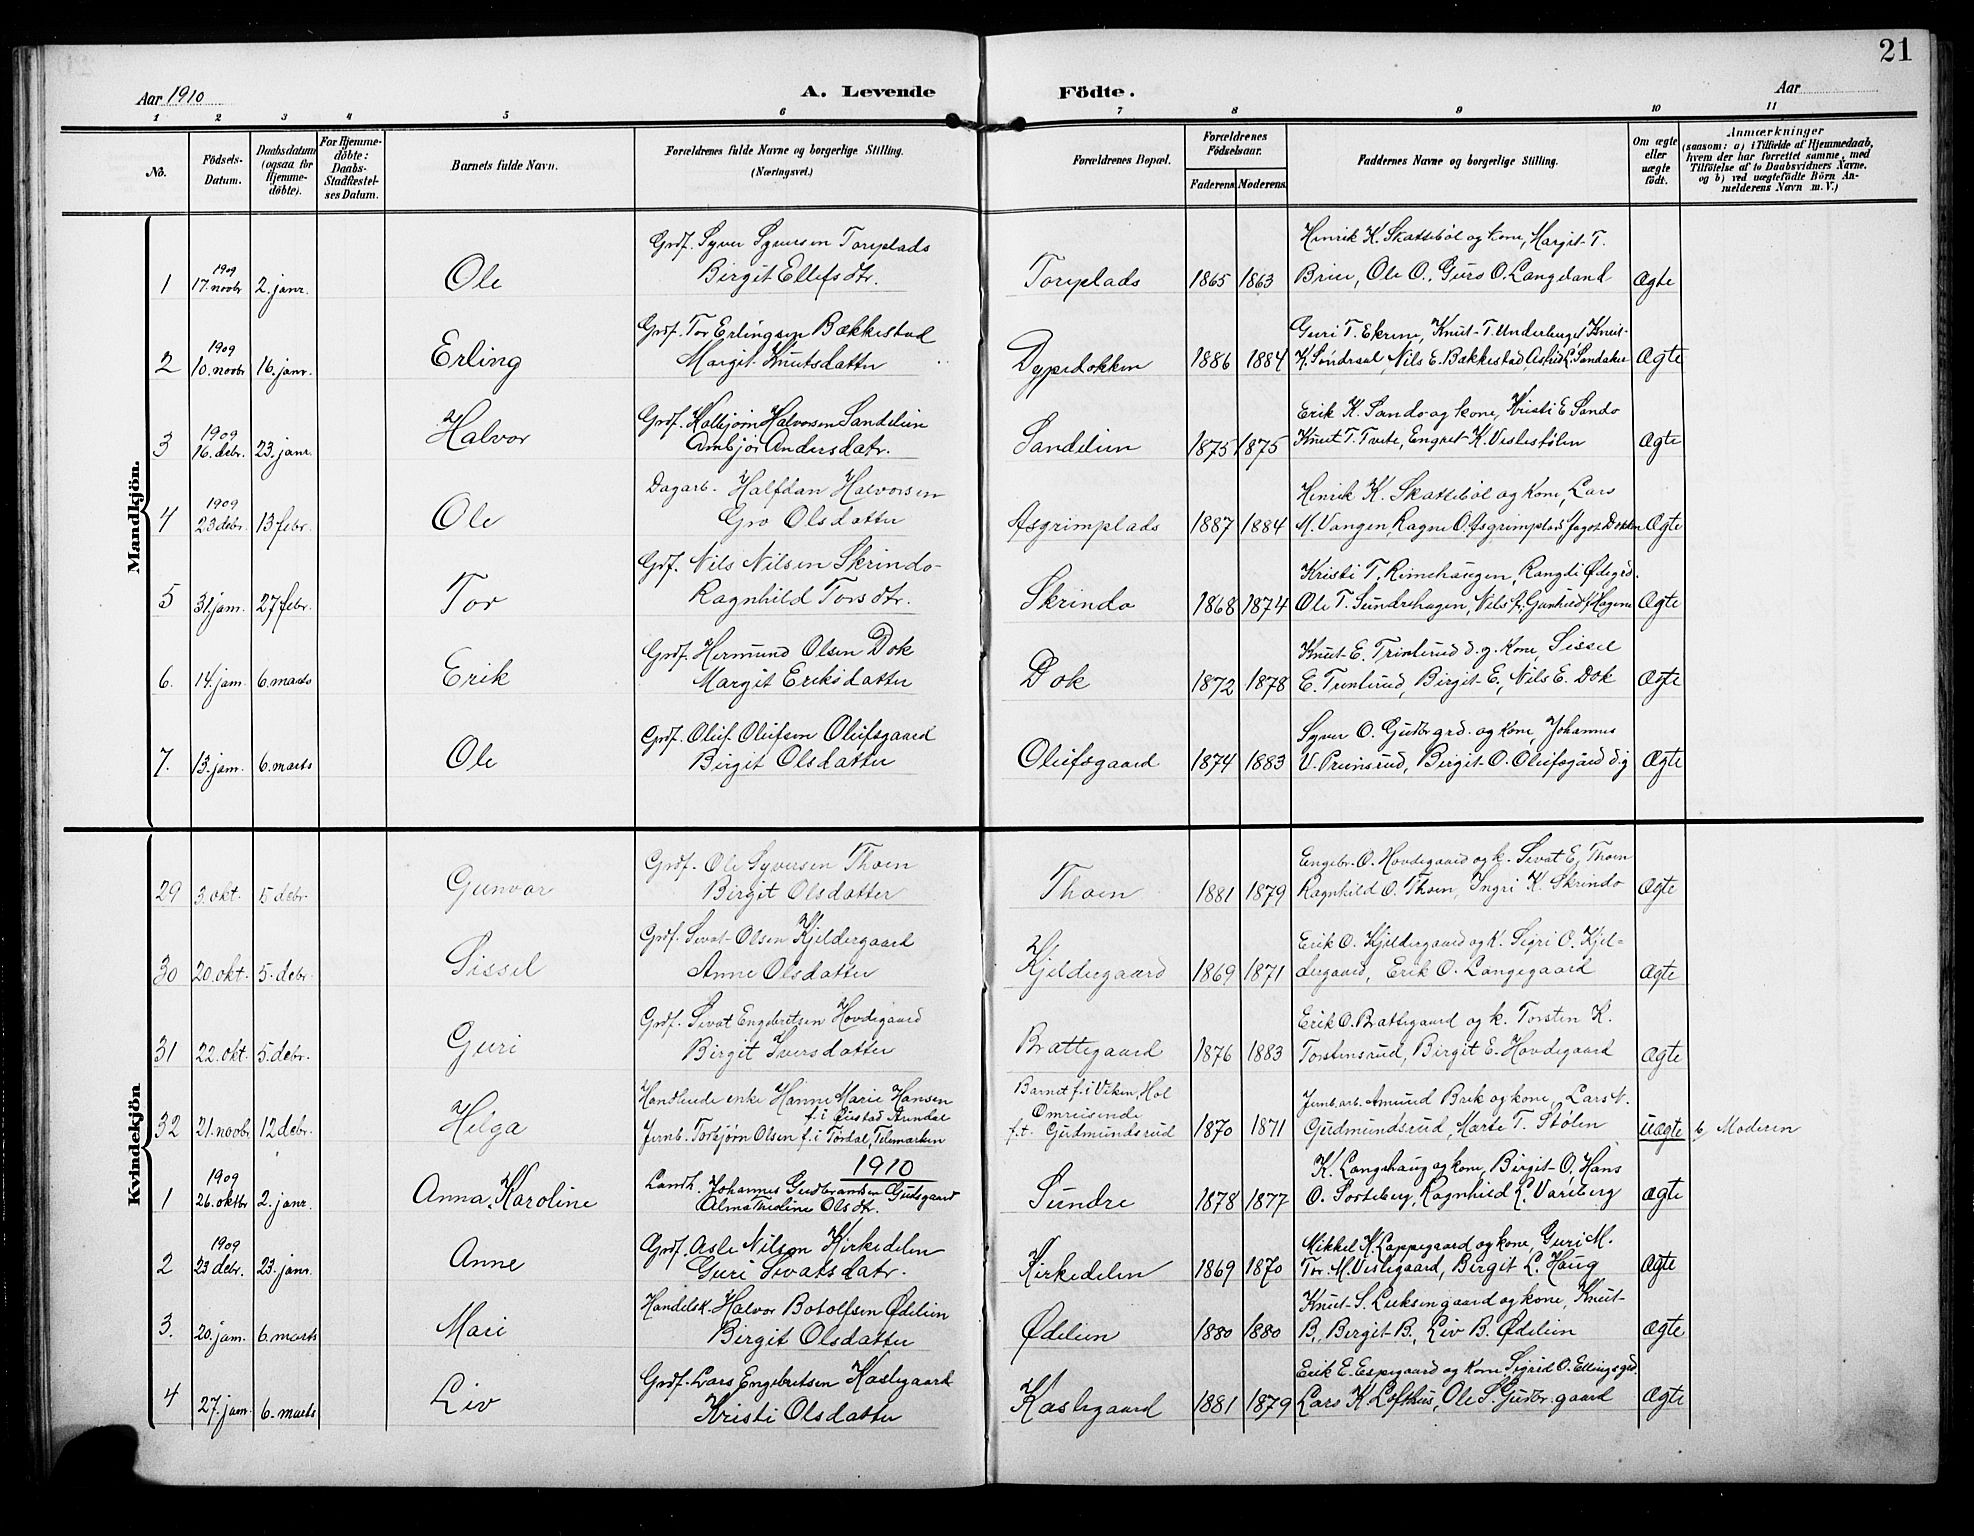 21
Aar 1910
A. Levende
Födte.
Aar
1 2 3 4 5 6 7 8 9 10 11
No.
Födsels-Datum.
Daabsdatum (ogsaa för Hjemmedöbte).
For Hjemmedöbte: Daabs-Stadfæstelses Datum.
Barnets fulde Navn.
Forældrenes fulde Navne og borgerlige Stilling. (Næringsvei.)
Forældrenes Bopæl.
Forældrenes Födselsaar.
Faderens
Moderens
Faddernes Navne og borgerlige Stilling.
Om ægte eller uægte födt.
Anmærkninger (saasom: a) i Tilfælde af Hjemmedaab, hvem der har forrettet samme, med Tilföielse af to Daabsvidners Navne, og b) ved uægtefödte Börn Anmelderens Navn m. V.)
Mandkjön.
1 1909 17. novbr 2. janr. Ole
Grdf. Syver Syversen Toreplads
Birgit Ellefsdtr.
Toreplads 1865 1863
Henrik K. Skattebøl og kone, Margit T.
Brue, Ole O., Guro O. Langeland Ægte
2 1909 10. novbr 16. janr. Erling
Grdf. Tor Erlingsen Bækkestad
Margit Knutsdatter
Dypedokken 1886 1884
Guri T. Ekrene, Knut T. Underberget, Knut
K. Søndraal, Nils E. Bækkestad, Astrid L. Sandaker Ægte
3 1909 16. debr. 23. janr. Halvor
Grdf. Halbjørn Halvorsen Sandelien
Ambjør Andersdatr.
Sandelien 1875 1875
Erik K. Sando og kone, Kristi E. Sando
Knut T. Tvete, Engret K. Veslestølen Ægte
4 1909 23 debr. 13 febr. Ole
Dagarb. Halfdan Halvorsen
Gro Olsdatter
Asgrimplads 1887 1884
Henrik K. Skattebøl og kone, Lars
M. Vangen, Ragne O. Asgrimplads, Dokken Ægte
5 31. jan. 27 febr. Tor
Grdf. Nils Nilsen Skrindo
Ragnhild Torsdtr.
Skrindo 1868 1874
Kristi T. Rimehaugen, Rangdi Ødegrd.
Ole T. Sundrehagen, Nils A., Gunhild Hagene Ægte
6. 14. jan. 6. marts Erik
Grdf. Hermund Olsen Dok
Margit Eriksdatter
Dok 1872 1878
Knut E. Trinterud d.y. kone, Sissel
E. Trinterud, Birgit E., Nils E. Dok Ægte
7. 13. jan. 6. marts Ole
Grdf. Oluf Olufsen Olufsgaard
Birgit Olsdatter
Olufsgaard 1874 1883
Syver O. Gudbrgrd. og kone, Johannes
V. Prunsrud, Birgit O. Olufsgård d.y Ægte
Kvindekjön
29 3. okt. 5 debr. Gunvor
Grdf. Ole Syversen Thoen
Birgit Olsdatter
Thoen 1881 1879
Engebr. O. Hovdegaard og k. Sevat E. Thoen
Ragnhild O. Thoen, Ingri K. Skrindo Ægte
30 20. okt. 5. debr. Sissel
Grdf. Sevat Olsen Kjeldergaard
Anne Olsdatter
Kjeldergaard 1869 1871
Erik O. Kjeldergaard og k. Sigri O. Kjel-
dergaard, Erik O. Langegaard Ægte
31 22. okt. 5. debr. Guri
Grdf. Sevat Engebretsen Hovdegaard
Birgit Iversdatter
Brattegaard 1876 1883
Erik O. Brattegaard og k. Torsten K.
Torstensrud, Birgit E. Hovdegaard Ægte
32 21. novbr 12 debr. Helga
Handlende enke Hanne Marie Hansen
f. i Øiestad Arndal
Jernb. Torbjørn Olsen f. i Tørdal, Telemarken
Barnet f. i Viken, Hol
Omreisende
f.t. Gudmundsrud 1870 1871
Jernb.arb. Amund Brek og kone, Lars N.
Gudmundsrud, Marte T. Stølen uægte b, Moderen
1910
1 1909 26. oktbr 2. janr. Anna Karoline
Landh. Johannes Gudbrandsen Gudsgaard
Alma Thedine Olsdtr.
Sundre 1878 1877
K. Langehaug og kone, Birgit O., Hans
O. Sorteberg, Ragnhild L. Vareberg Ægte
2 1909 23 debr. 23. janr. Anne
Grdf. Asle Nilsen Kirkedelen
Guri Sevatsdatr.
Kirkedelen 1869 1870
Mikkel K. Lappegaard og kone, Guri M.
Tor M. Veslegaard, Birgit L. Haug Ægte
3. 20. jan. 6. marts Mari
Handelsk. Halvor Botolfsen Ødelien
Birgit Olsdatter
Ødelien 1880 1880
Knut S. Leksengaard og kone, Knut
B., Birgit B., Liv B. Ødelien Ægte
4 27. jan. 6. marts Liv
Grdf. Lars Engebretsen Kaslegaard
Kristi Olsdatter
Kaslegaard 1881 1879
Erik E. Espegaard og kone Sigrid O. Ellingsgrd.
Lars K. Lofthus, Ole S. Gudbr.gaard Ægte